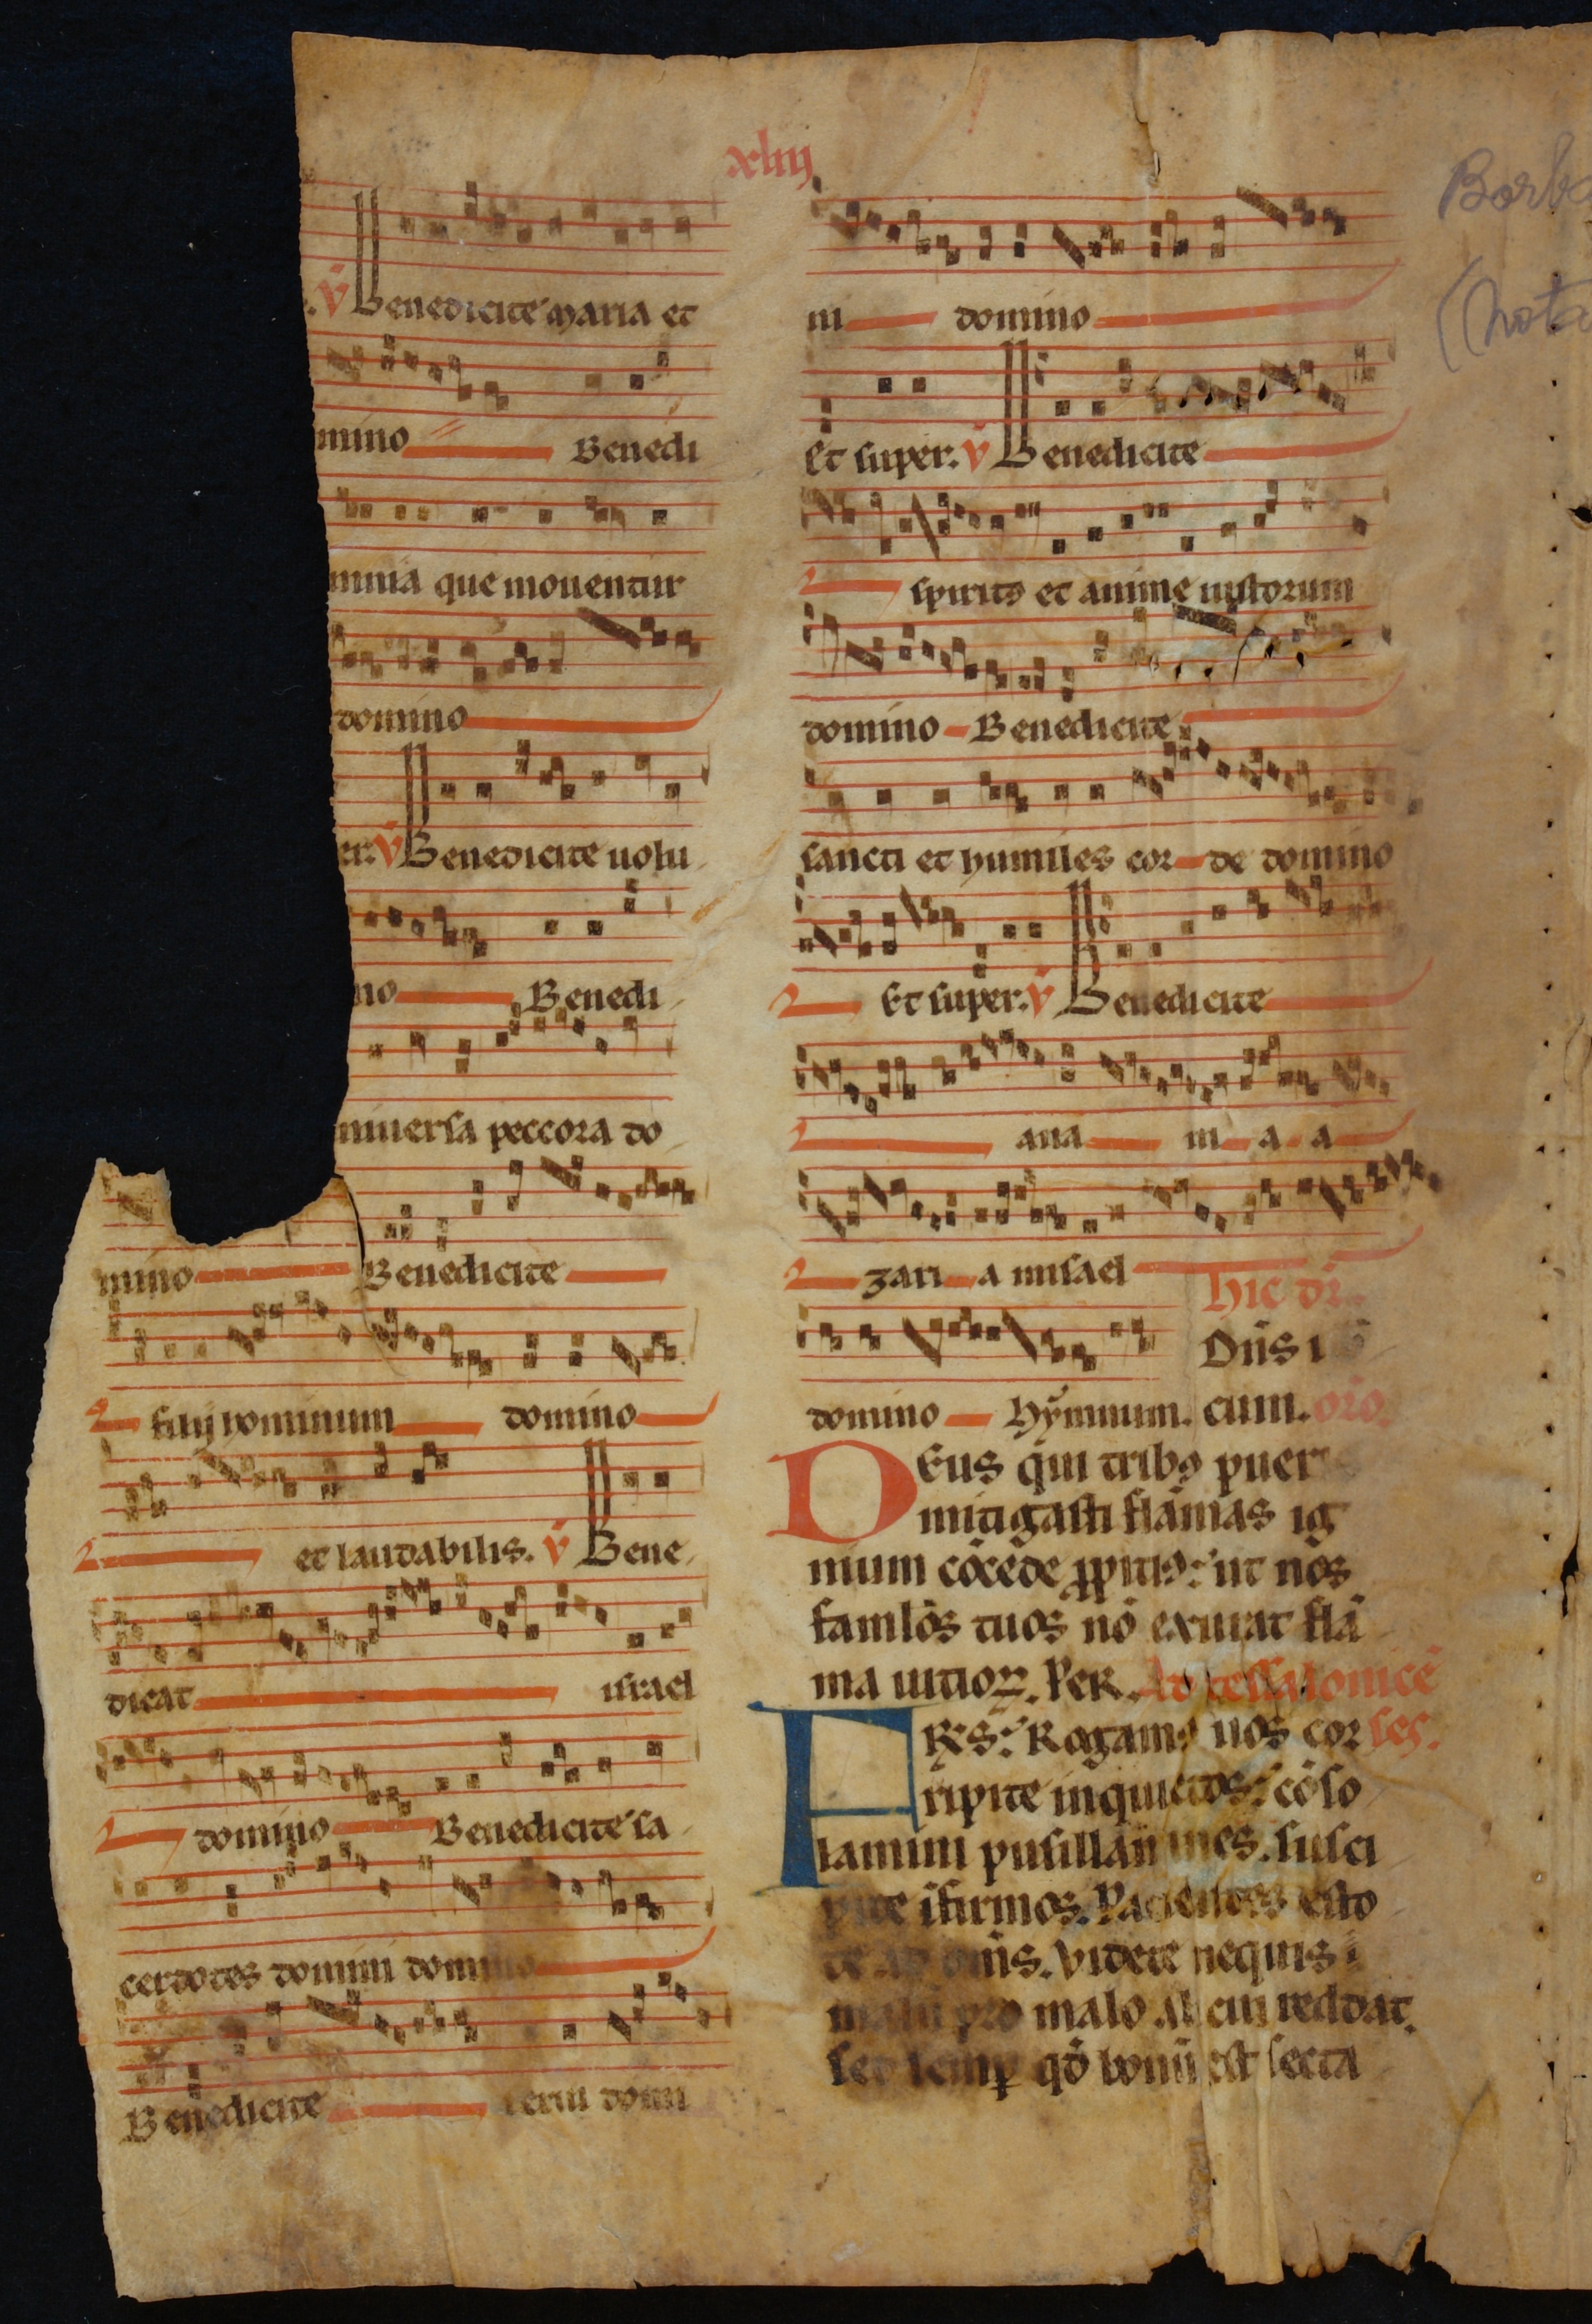 xliij
v̄ Benedicite maria et
mino Benedi
mnia que mouentur
domino
er. v̄ Benedicite uolu
no Benedi
niuersa peccora do
mino Benedicite
filij hominum domino
et laudabilis. v̄ Bene
dicat israel
domino Benedicite sa
cerdotes domini domino
Benedicite serui domi
ni domino
Et super. v̄ Benedicite
spiritꝰ et anime iustorum
domino Benedicite
sancti et humiles cor de domino
Et super. v̄ Benedicite
ana ni a a
zari a misael
Hic di
Dn̄s
domino Hymnum. cum. oro.
DEus qui tribꝰ puer
mitigasti flāmas ig
nium cōcede ꝓpitiꝰ: ut nos
famlōs tuos nō exurat flā
ma uitioꝝ. Per. Ad tessalonicē
FR̄s: Rogamꝰ uos cor ses.
ripite inquietos: cōso
lamini pusillanimes. susci
pite īfirmos. Pacientes esto
te ad om̄is. Videte nequis
malū pro malo alicui reddat.
set semꝑ qd̄ bonū est secta
Borb
(nota